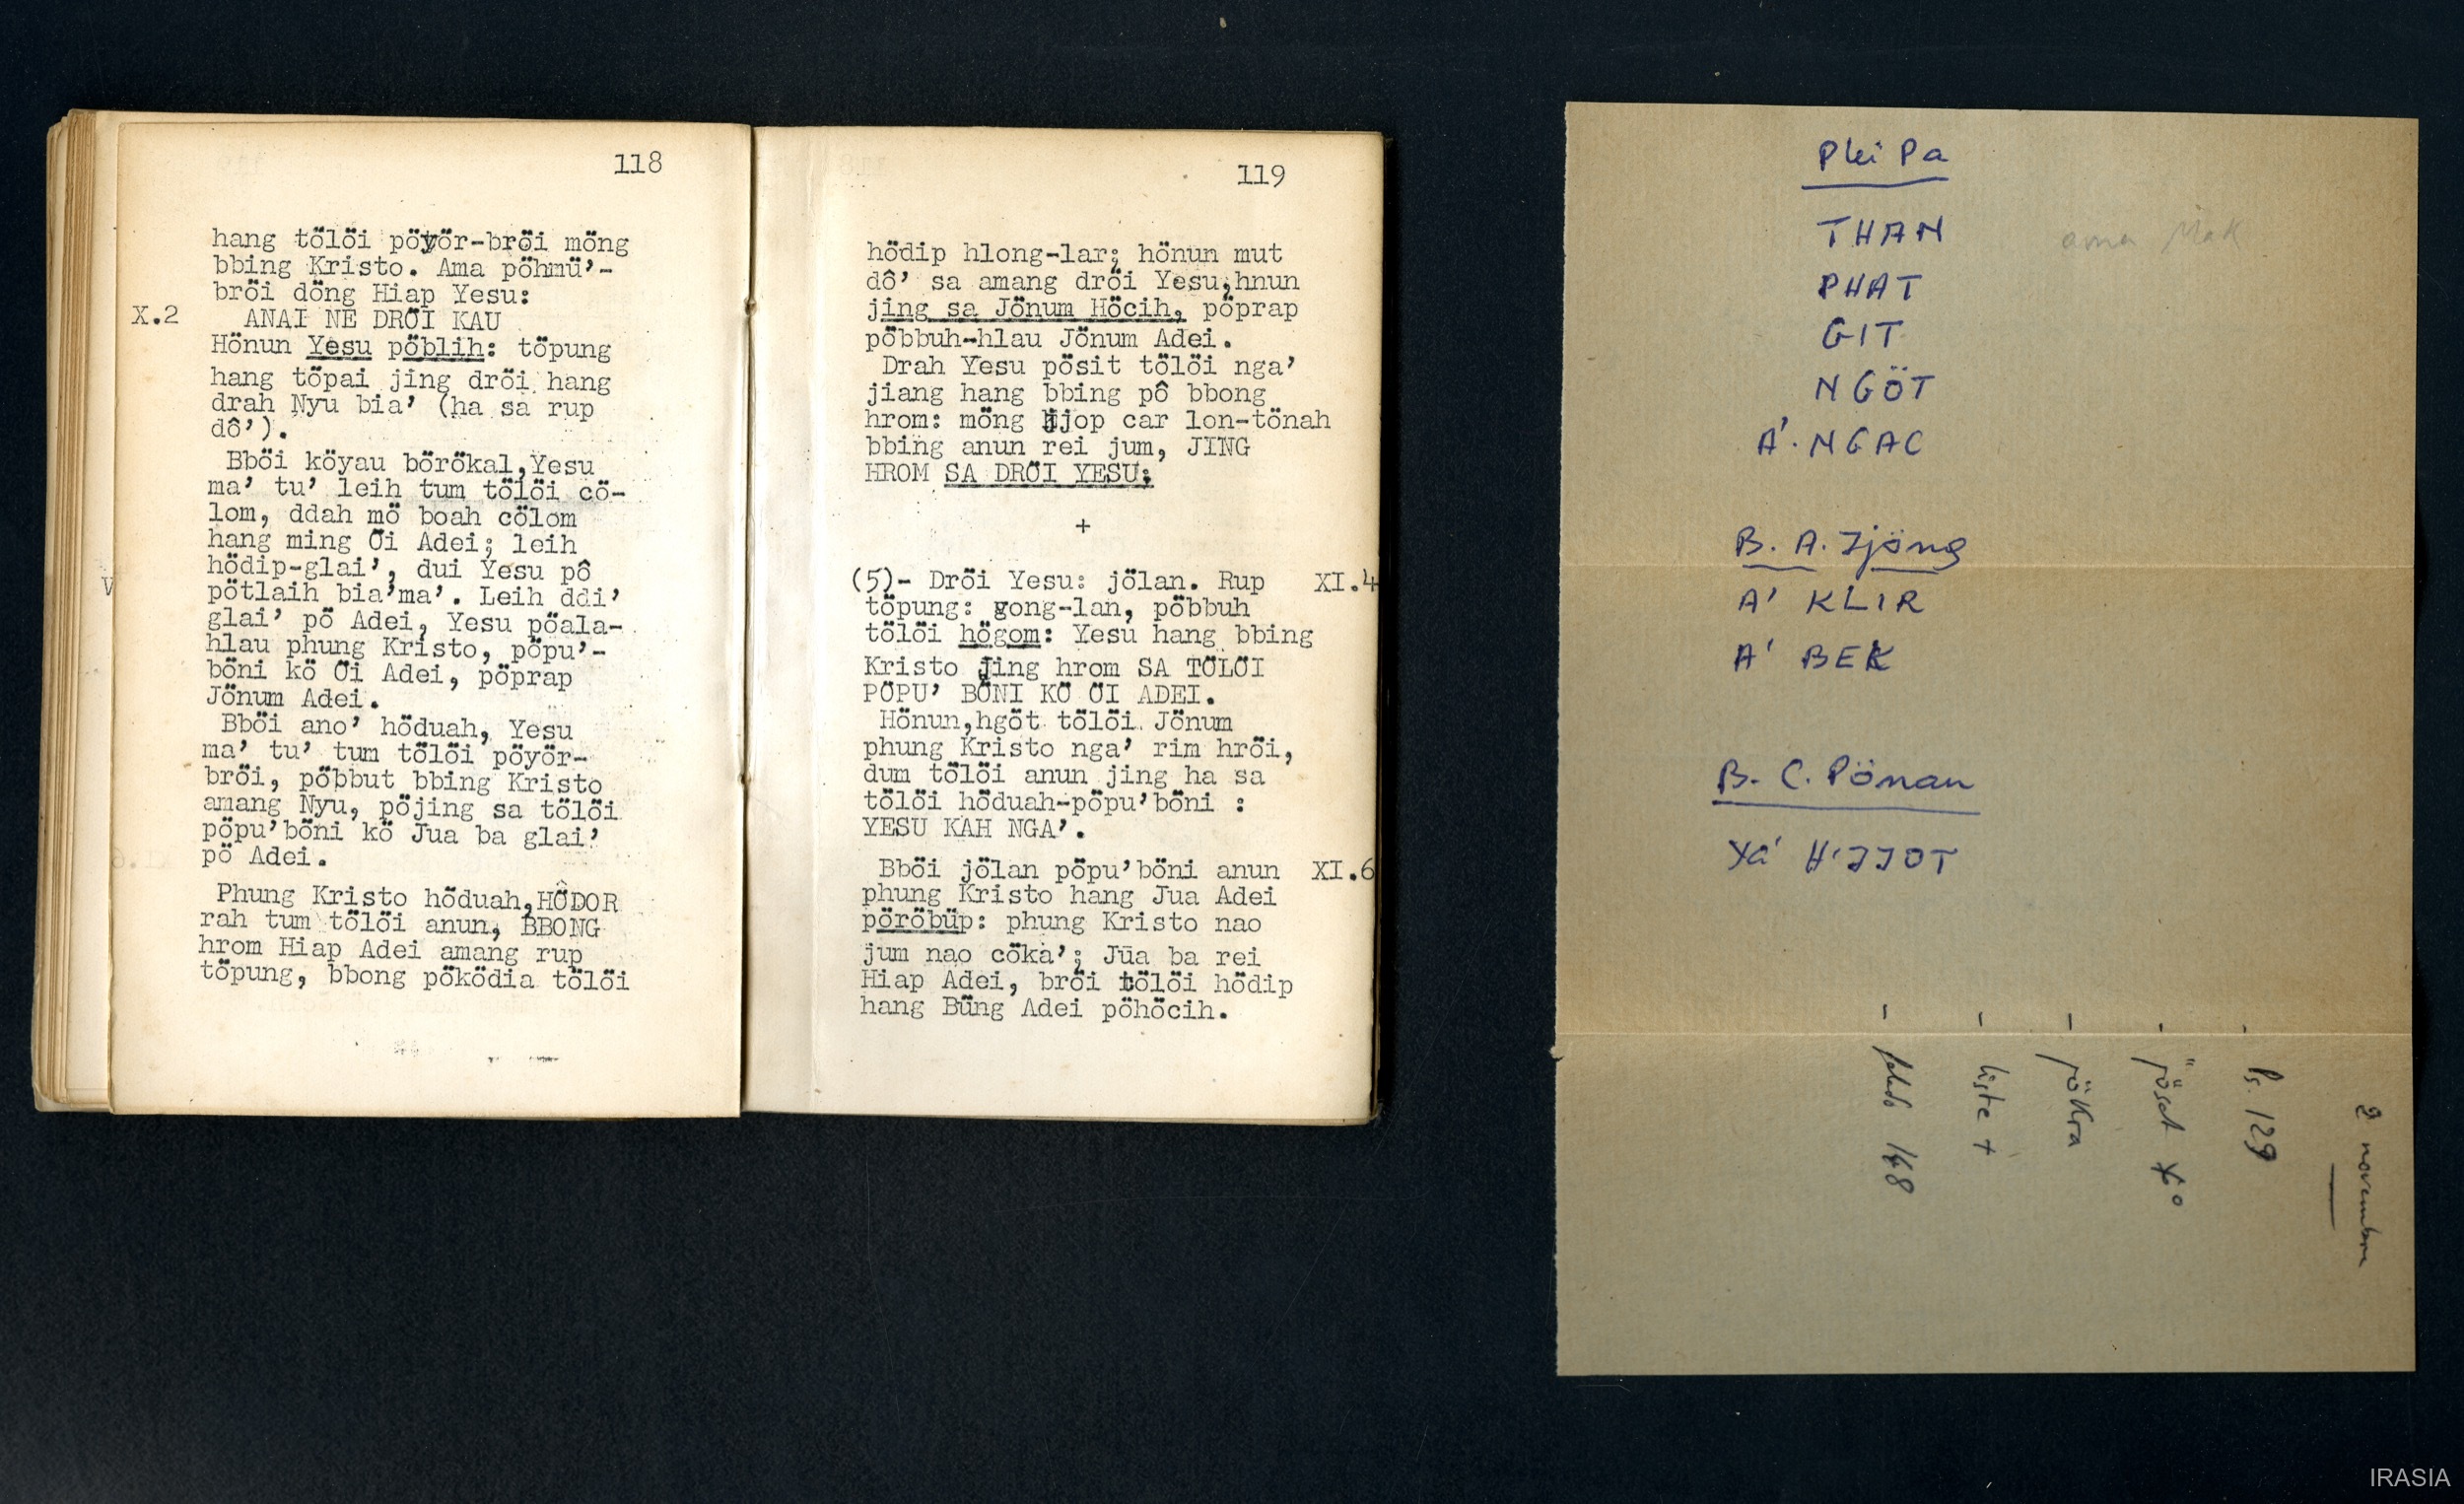 118
hang tölöi pöyör-bröi möng
bbing Kristo. Ama pöhmü’-
bröi döng Hiap Yesu:
X.2 ANAI NE DRÖI KAU
Hönun Yesu pöblih: töpung
hang töpai jing dröi hang
drah Nyu bia’ (ha sa rup
dô’).
Bböi köyau börökal,Yesu
ma’ tu’ leih tum tölöi cö-
lom, ddah mö boah cölom
hang ming Öi Adei; leih
hödip-glai’, dui Yesu pô
pötlaih bia’ma’. Leih ddi’
glai’ pö Adei, Yesu pöala-
hlau phung Kristo, pöpu’-
böni kö Öi Adei, pöprap
Jönum Adei.
Bböi ano’ höduah, Yesu
ma’ tu’ tum tölöi pöyör-
bröi, pöbbut bbing Kristo
amang Nyu, pöjing sa tölöi
pöpu’böni kö Jua ba glai’
pö Adei.
Phung Kristo höduah,HÖDOR
rah tum tölöi anun, BBONG
hrom Hiap Adei amang rup
töpung, bbong pöködia tölöi
119
hödip hlong-lar; hönun mut
dô’ sa amang dröi Yesu;hnun
jing sa Jönum Höcih, pöprap
pöbbuh-hlau Jönum Adei.
Drah Yesu pösit tölöi nga’
jiang hang bbing pô bbong
hrom: möng jjop car lon-tönah
bbing anun rei jum, JING
HROM SA DRÖI YESU;
+
(5)- Dröi Yesu: jölan. Rup XI.4
töpung: gong-lan, pöbbuh
tölöi högom: Yesu hang bbing
Kristo jing hrom SA TÖLÖI
PÖPU’ BÖNI KÖ ÖI ADEI.
Hönun,hgöt tölöi Jönum
phung Kristo nga’ rim hröi,
dum tölöi anun jing ha sa
tölöi höduah-pöpu’böni :
YESU KAH NGA’.
Bböi jölan pöpu’böni anun XI.6
phung Kristo hang Jua Adei
pöröbüp: phung Kristo nao
jum nao cöka’; Jua ba rei
Hiap Adei, bröi tölöi hödip
hang Büng Adei pöhöcih.
Plei Pa
THAN ama Mak
PHAT
GIT
NGÖT
A'. NGAC
B. A. Jjöng
A' KLIR
A' BEK
B. C. Pönan
Ya' H'JJOT
2 novembre
- Ps. 129
- jöset
- jökra
- liste +
- 148
IRASIA